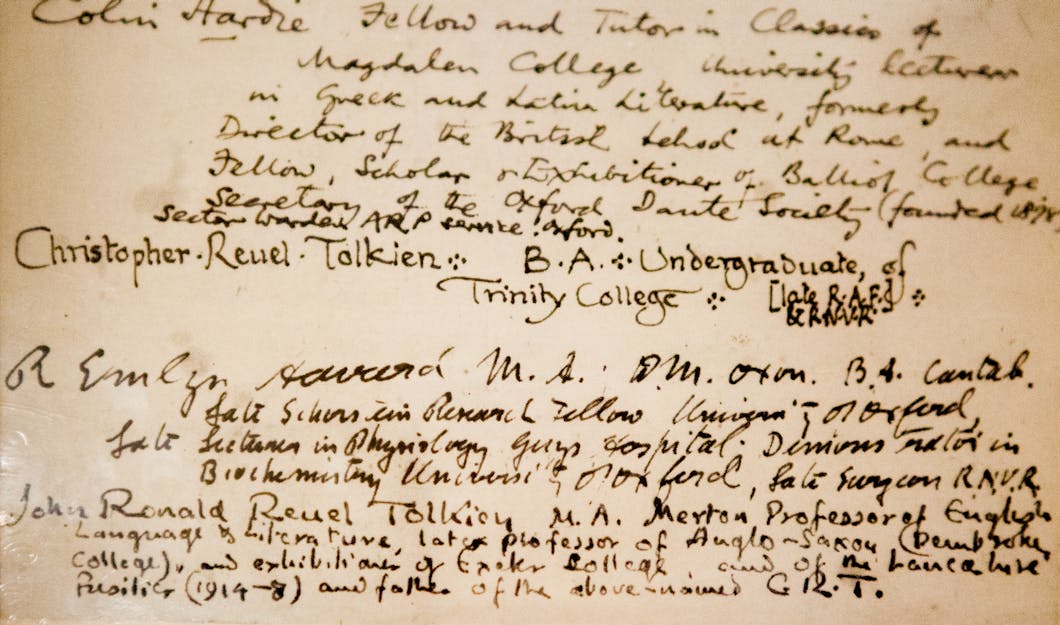 Colin Hardie Fellow and Tutor in Classics of
Magdalen College, University Lecturer
in Greek and Latin Literature, formerly
Director of the British School at Rome, and
Fellow, Scholar & Exhibitioner of Balliol College
Secretary of the Oxford Dante Society (founded
Sector Warden ARP service. Oxford.
Christopher · Reuel · Tolkien ⁘ B.A. ⁘ Undergraduate, of
Trinity College ⁘ [late R.A.F.] ⁘
& R.N.V.R.
R Emlyn Havard M.A. D.M. Oxon. B.A. Cantab.
Late Research Fellow University of Oxford,
Late Lecturer in Physiology Guys Hospital. Demonstrator in
Biochemistry University of Oxford, Late Surgeon R.N.V.R.
John Ronald Reuel Tolkien M.A. Merton Professor of English
Language & Literature, late professor of Anglo-Saxon (Pembroke
College), and exhibitioner of Exeter College and of the Lancashire
Fusiliers (1914–8) and father of the above-named C.R.T.